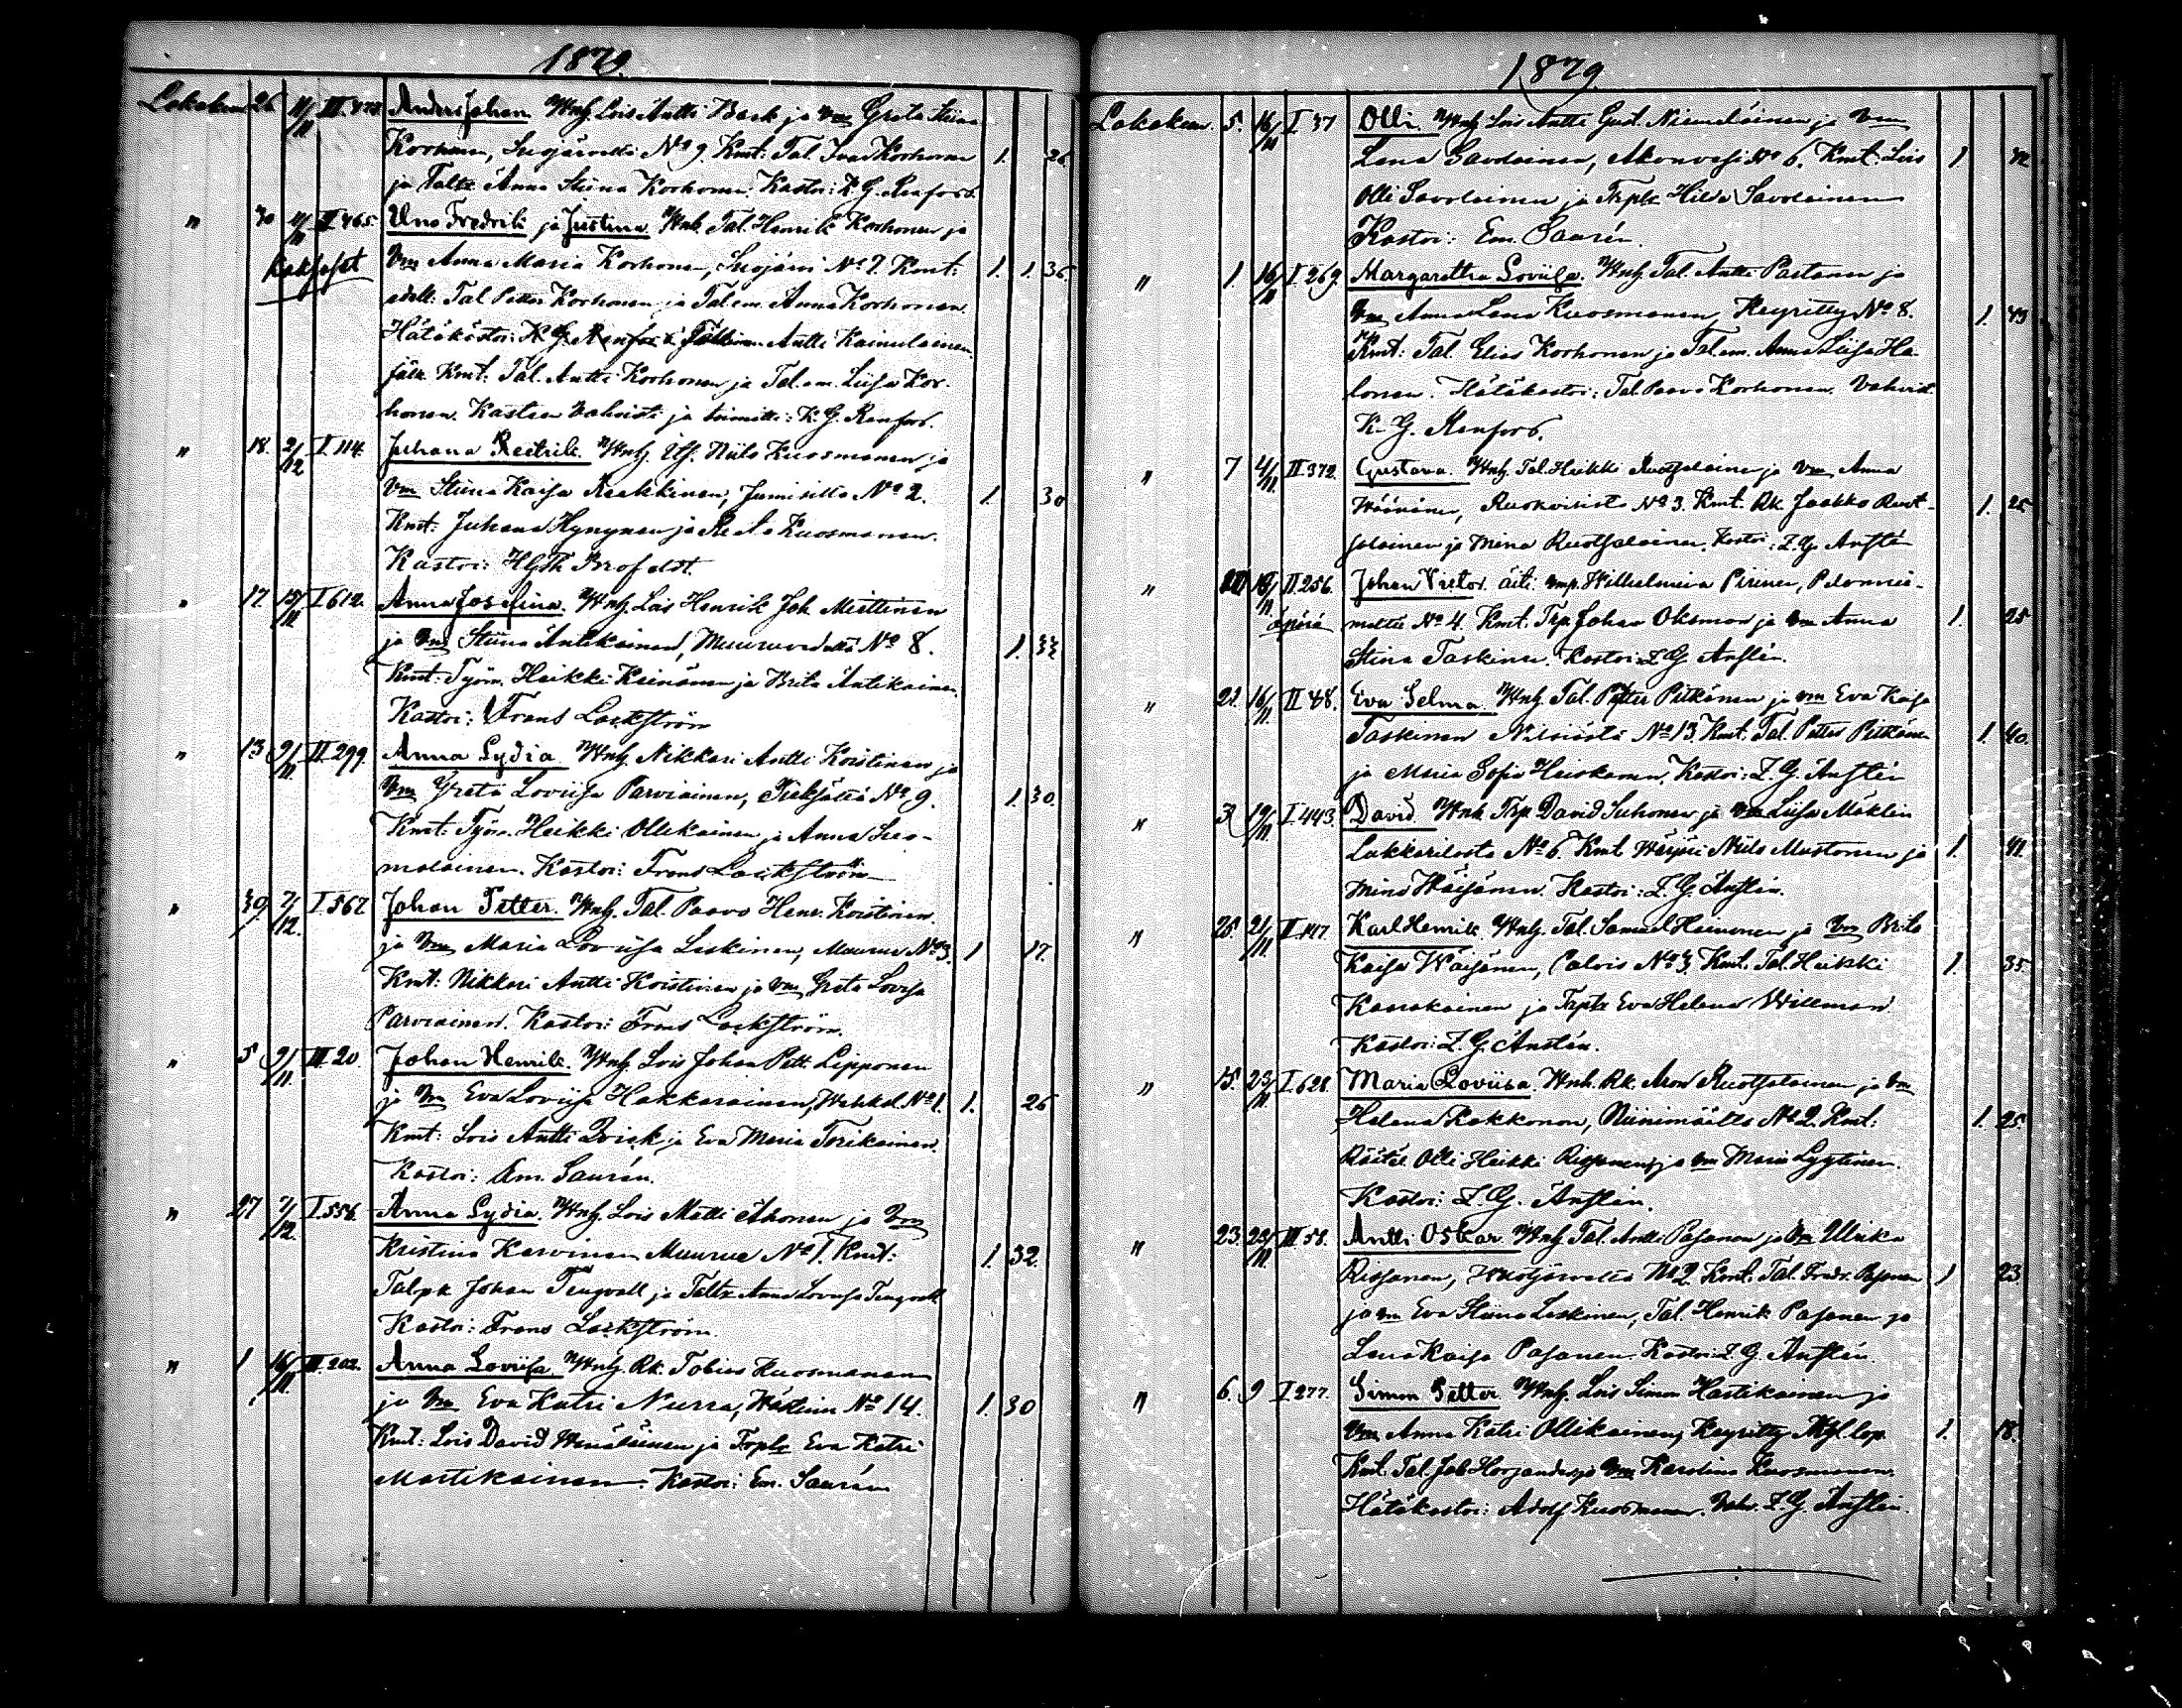 1879.
Lokakuu 26 11/11 III. 478. Anders Johan. Wnh. Lois Antti Back ja Vm Greta Stiina
Korhonen, Suojärveltä No 9. Kmt: Tal. Ivar Korhonen 1. 26
ja Taltr Anna Stiina Korhonen. Kastoi: K. G. Renfors.
" 30 11/11 III 465. Uno Fredrik ja Justina. Wnh. Tal. Henrik Korhonen ja
Kaksoset Vm Anna Maria Korhonen, Suojärvi No 7. Kmt: 1. 1. 36.
edell. Tal. Petter Korhonen ja Tal.em. Anna Korhonen.
Hätäkastoi: Antti Kainulainen
jälk. Kmt: Tal. Antti Korhonen ja Tal.em. Liisa Kor-
honen. Kasteen vahvisti ja toimitti: K. G. Renfors.
" 18. 2/12 I 114. Juhana Reetrik. Wnh. Itj. Niilo Kuosmanen ja
Vm Stiina Kaisa Raekkinen, No 2. 1. 30
Kmt: Juhana Hynynen ja Kuosmanen.
Kastoi: Hj Th Brofeldt.
" 17. 15/11 I 612. Anna Josefina. Wnh. Lois Henrik Joh Miettinen
ja Vm Stiina Antikainen, Muuruvedeltä No 8. 1. 33
Kmt: Työm. Heikki Keinänen ja Brita Antikainen.
Kastoi: Frans Lackström
" 13 9/11 II 299. Anna Lydia. Wnh. Nikkari Antti Koistinen ja
Vm Greta Loviisa Parviainen, No 9. 1. 30.
Kmt: Työm. Heikki Ollikainen ja Anna Suo-
malainen. Kastoi: Frans Lackström
" 30 7/12. I 567 Johan Petter. Wnh. Tal. Paavo Henr. Koistinen
ja Vm Maria Loviisa Leskinen, Muurue No 3. 1 17.
Kmt: Nikkari Antti Koistinen ja Vm Greta Lovisa
Parviainen. Kastoi: Frans Lackström.
" 5 9/11. III 20. Johan Henrik. Wnh. Lois Johan Pett. Lipponen
ja Vm Eva Loviisa Hakkarainen, No 1. 1. 26
Kmt: Lois Antti Qvick ja Eva Maria Torikainen.
Kastoi: Em. Saurén.
" 27 7/12. I. 556. Anna Lydia. Wnh. Lois Matti Ahonen ja Vm
Kristina Karvinen Muurue No 1. Kmt: 1. 32.
Talpk Johan Tengvall ja Taltr Anna Lovisa Tengvall
Kastoi: Frans Lackström.
" 1 16/11. III. 202. Anna Loviisa. Wnh. Rk. Tobias Kuosmanen
ja Vm Eva Katri Nurra, No 14. 1. 30
Kmt: Lois David Wenäläinen ja Trptr Eva Katri
Martikainen. Kastoi: Em. Saurén
1879.
Lokakuu. 5. 16/11 I 37 Olli. Wnh. Lois Antti Gust. Niemeläinen ja Vm
Lena Savolainen, Akonvesi No 6. Kmt: Lois 1 42
Olli Savolainen ja Trptr Hilda Savolainen
Kastoi: Em. Saurén.
" 1. 16/11 I 269. Margaretha Loviisa. Wnh. Tal. Antti Partanen ja
Vm Anna Lena Kuosmanen, Keyritty No 8. 1. 43
Kmt: Tal. Elias Korhonen ja Tal.em. Anna Liisa Ha-
lonen. Hätäkastoi: Tal. Paavo Korhonen. Vahvist.
K. G. Renfors.
" 7 4/11. III 372. Gustava. Wnh. Tal. Heikki Ruotsalainen ja Vm Anna
Wäänänen, No 3. Kmt. Rk. Jaakko Ruot- 1. 25
salainen ja Mina Ruotsalainen. Kastoi: Z. G. Anstén
" 19/11 II 256. Johan Viktor. äiti: Wilhelmina Piirinen, Pelonnie-
äpärä meltä No 4. Kmt. Trp. Johan Oksman ja Vm Anna 1. 25
Stina Taskinen. Kastoi: Z. G. Anstén.
" 21. 16/11. II 48. Eva Selma. Wnh. Tal. Petter Pitkänen ja Vm Eva Kaisa
Taskinen Nilsiästä No 13. Kmt. Tal. Petter Pitkänen 1. 40.
ja Maria Sofia Heiskanen. Kastoi: Z. G. Anstén
" 3 19/11. I. 443. David. Wnh. Trp. David Suhonen ja Vm Liisa Mäklin
No 6. Kmt Niilo Mustonen ja 1. 41.
Mina Wäisänen. Kastoi: Z. G. Anstén.
" 25. 21/11. II. 147. Karl Henrik. Wnh. Tal. Samuel Heinonen ja Vm Brita
Kaisa Wäisänen, Palois No 3. Kmt. Tal. Heikki 1. 35
ja Trptr Eva Helena Willman.
Kastoi: Z. G. Anstén.
" 15. 23/11. I. 628. Maria Loviisa. Wnh. Rk. Aron Ruotsalainen ja Vm
Helena Kokkonen, Niinimäeltä No 2. Kmt: 1. 25.
Räätäl Olli Heikki Rissanen ja Vm Maria Lyytinen.
Kastoi: Z. G. Anstén.
" 23. 23/11. III 58. Antti Oskar. Wnh. Tal. Antti Pasanen ja Vm Ulrika
Rissanen, Wuotjärveltä No 2. Kmt: Tal. Fredr. Pasanen 1 23
ja Vm Eva Stiina Leskinen, Tal. Henrik Pasanen ja
Lena Kaisa Pasanen. Kastoi: Z. G. Anstén.
" 6. 9 I 277. Simon Petter. Wnh. Lois Simon Hartikainen ja
Vm Anna Katri Ollikainen, Keyritty 1. 18.
Kmt. Tal. Joh. ja Vm Karolina Kuosmanen.
Hätäkastoi: Adolf Kuosmanen. Vahv. Z. G. Anstén.